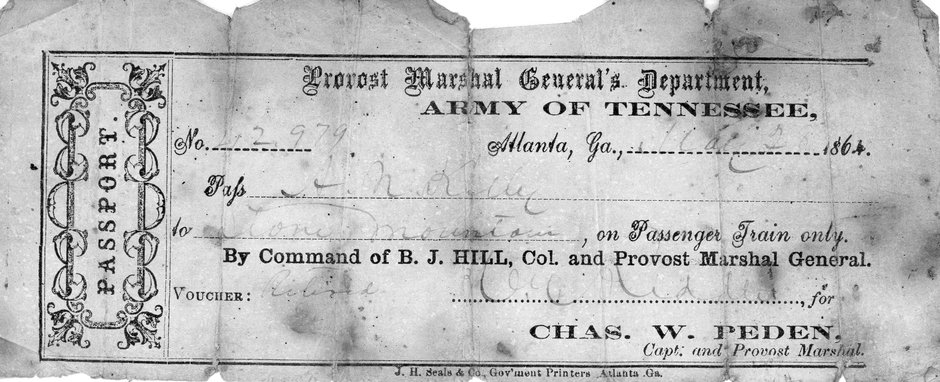 PASSPORT.
Provost Marshal General's Department,
ARMY OF TENNESSEE,
No. 2979 Atlanta, Ga., 1864.
Pass
to Stone Mountain, on Passenger Train only.
By Command of B. J. HILL, Col. and Provost Marshal General.
VOUCHER: , for
CHAS. W. PEDEN,
Capt. and Provost Marshal.
J. H. Seals & Co., Gov'ment Printers Atlanta Ga.